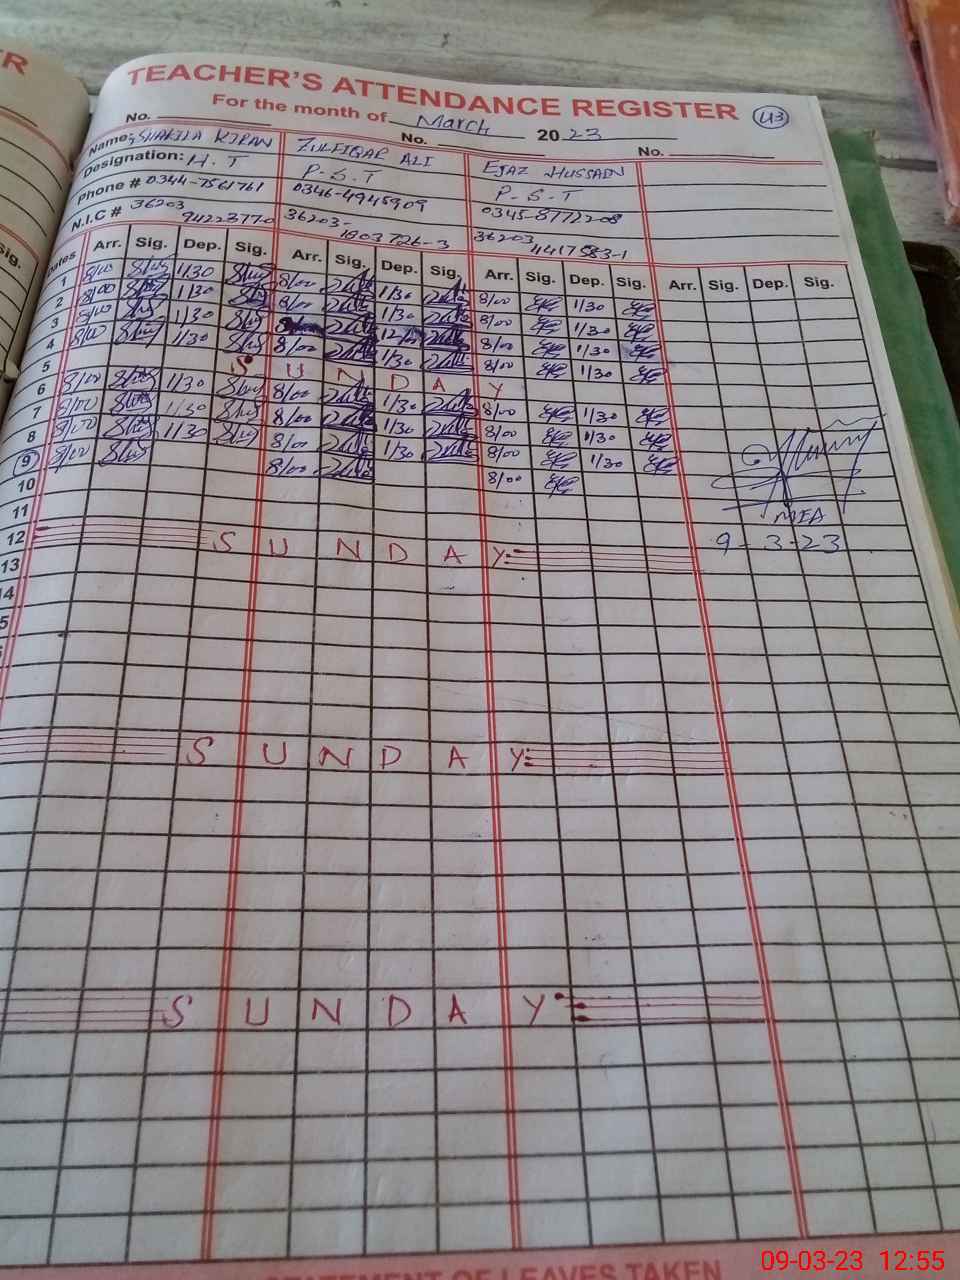 ER
TEACHER'S ATTENDANCE REGISTER
For the month of March 2023
43
No. No. No.
Name: SHAKILA KIRAN ZULFIQAR ALI EJAZ HUSSAIN
Designation: H.T P.S.T P.S.T
Phone # 0344-7561761 0346-4945909 0345-8772208
N.I.C # 36203 94223770 36203- 1803726-3 36203 4417583-1
Sig.
Dates Arr. Sig. Dep. Sig. Arr. Sig. Dep. Sig. Arr. Sig. Dep. Sig. Arr. Sig. Dep. Sig.
1 8/00 1/30 8/00 1/30 8/00 1/30
2 8/00 1/30 8/00 1/30 8/00 1/30
3 8/00 1/30 12/00 8/00 1/30
4 8/00 1/30 8/00 1/30 8/00 1/30
5 SUNDAY
6 8/00 1/30 8/00 1/30 8/00 1/30
7 8/00 1/30 8/00 1/30 8/00 1/30
8 8/00 1/30 8/00 1/30 8/00 1/30
9 8/00 8/00 8/00
10
11
MEA
12 SUNDAY
9-3-23
13
14
SUNDAY
SUNDAY
STATEMENT OF LEAVES TAKEN
09-03-23 12:55